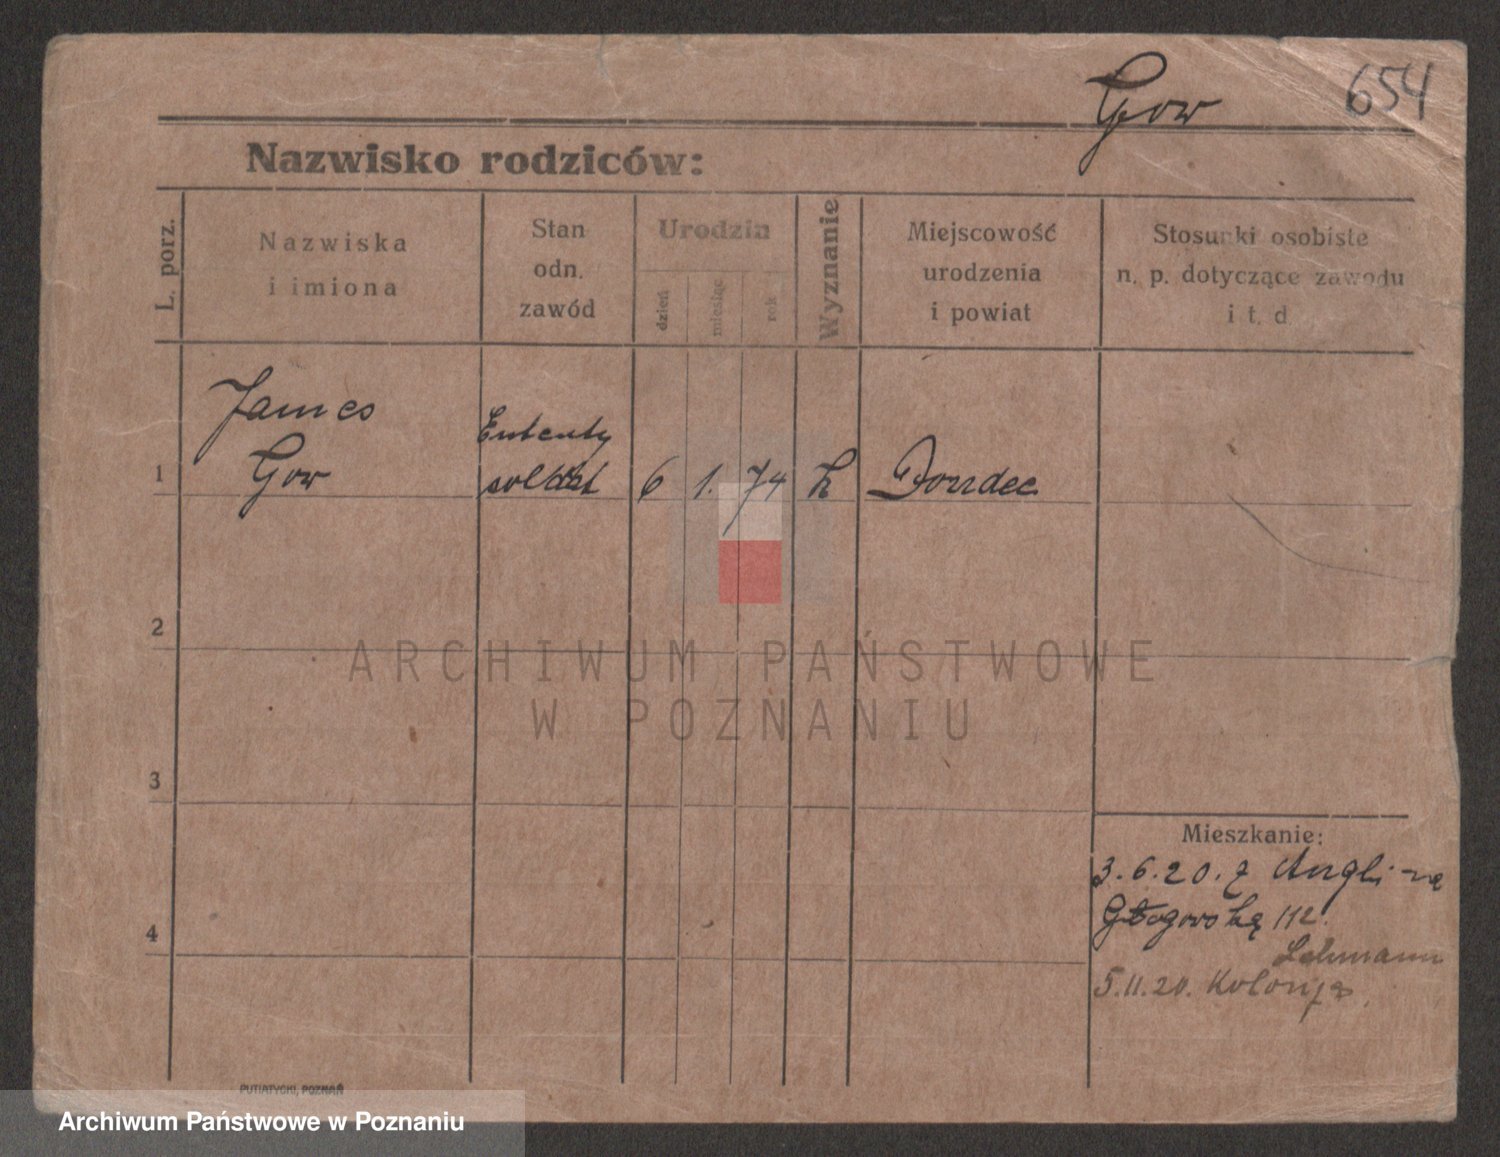 Gow 654
Nazwisko rodziców:
L. porz.
Nazwiska
i imiona
Stan
odn.
zawód
Urodzin
dzień
miesiąc
rok
Wyznanie
Miejscowość
urodzenia
i powiat
Stosunki osobiste
n. p. dotyczące zawodu
i t. d
James
Gow
Ententy
soldat
1 6 1. 74 Dondee
2
3
4
ARCHIWUM PAŃSTWOWE
W POZNANIU
Mieszkanie:
3.6.20. z Anglii na
Głogowską 112.
Lehmann
5.11.20. Kolonja
PUTIATYCKI, POZNAŃ
Archiwum Państwowe w Poznaniu